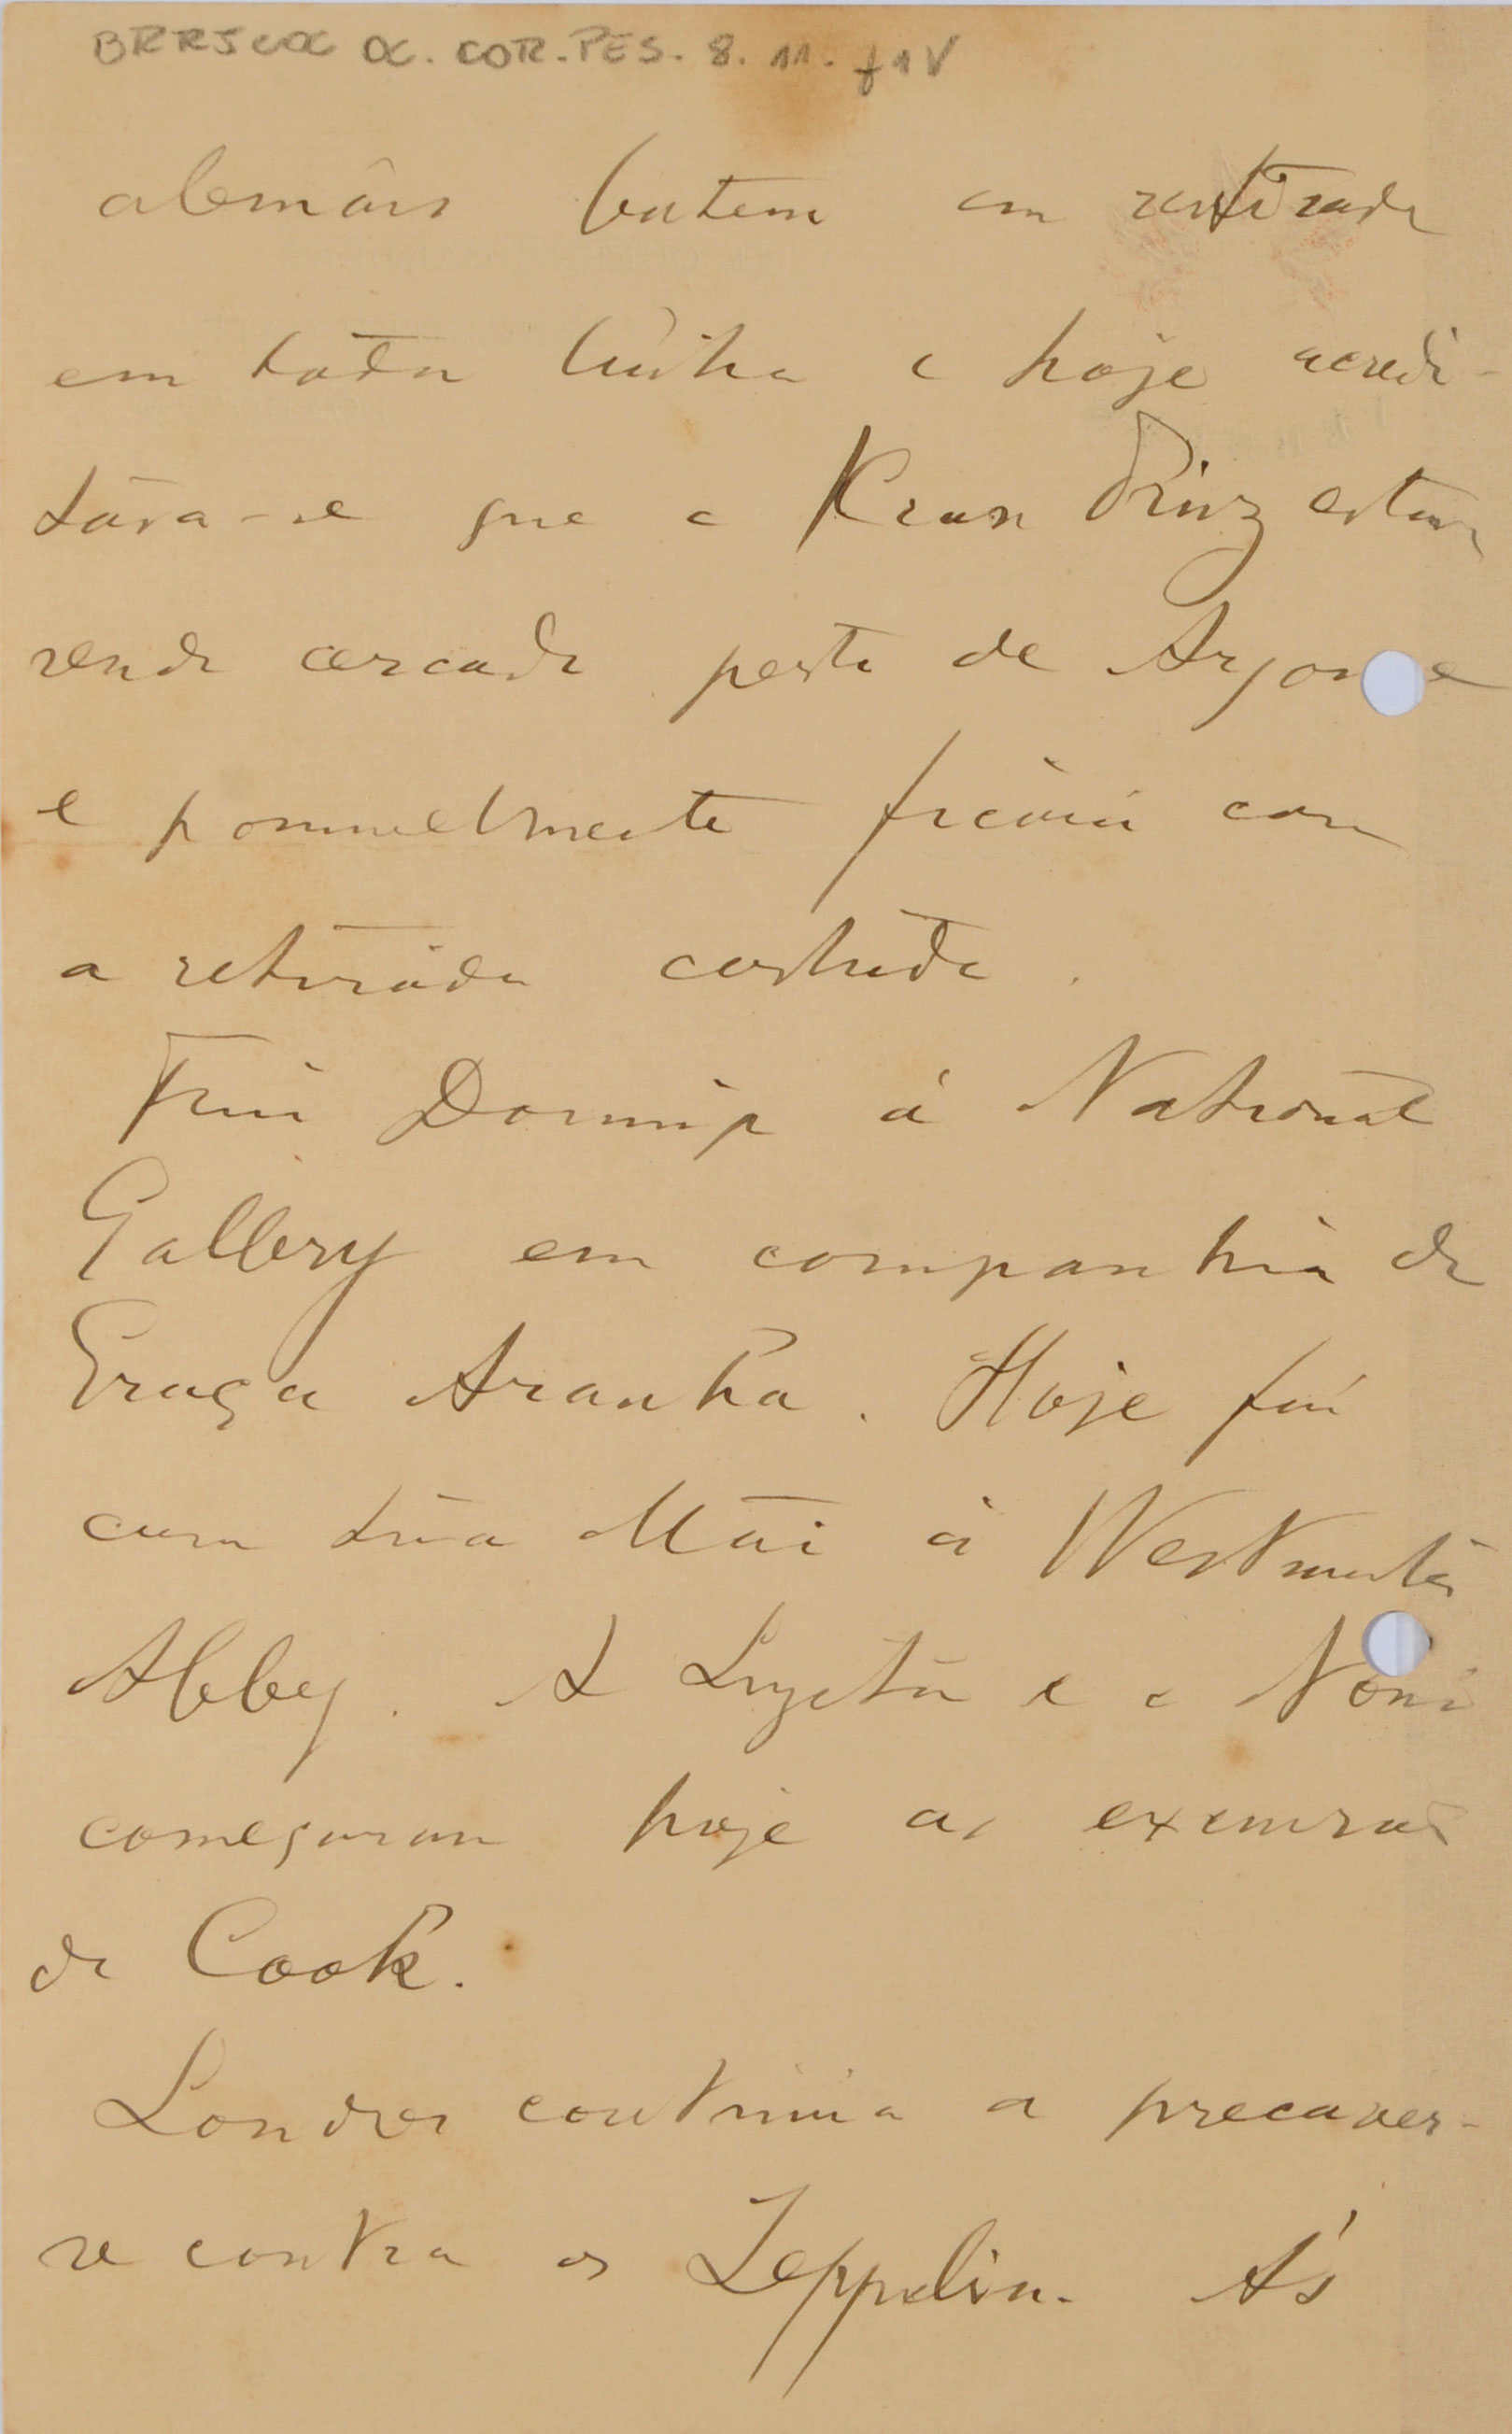 BRRJCOC OC. COR. PES. 8. 11. f1V
alemães batem em retirada
em toda linha e hoje acredi-
tava-se que o Kron Prinz estava
sendo cercado perto de Argonne
e possivelmente ficará com
a retirada cortada.
Fui Domingo á National
Gallery em companhia do
Graça Aranha. Hoje fui
com tua Mãi á Westminster
Abbey. A Lizeta e o Noni
começaram hoje as excursões
do Cook.
Londres continúa a precaver-
se contra os Zeppelin. Ás